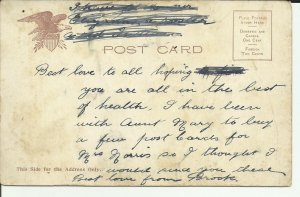 POST CARD
PLACE POSTAGE
STAMP HERE
DOMESTIC AND
CANADA
ONE CENT
FOREIGN
TWO CENTS
Best love to all hoping
you are all in the best
of health. I have been
with Aunt Mary to buy
a few post Cards for
Mrs Norris so I thought I
would send you these
This Side for the Address Only.
Best love from